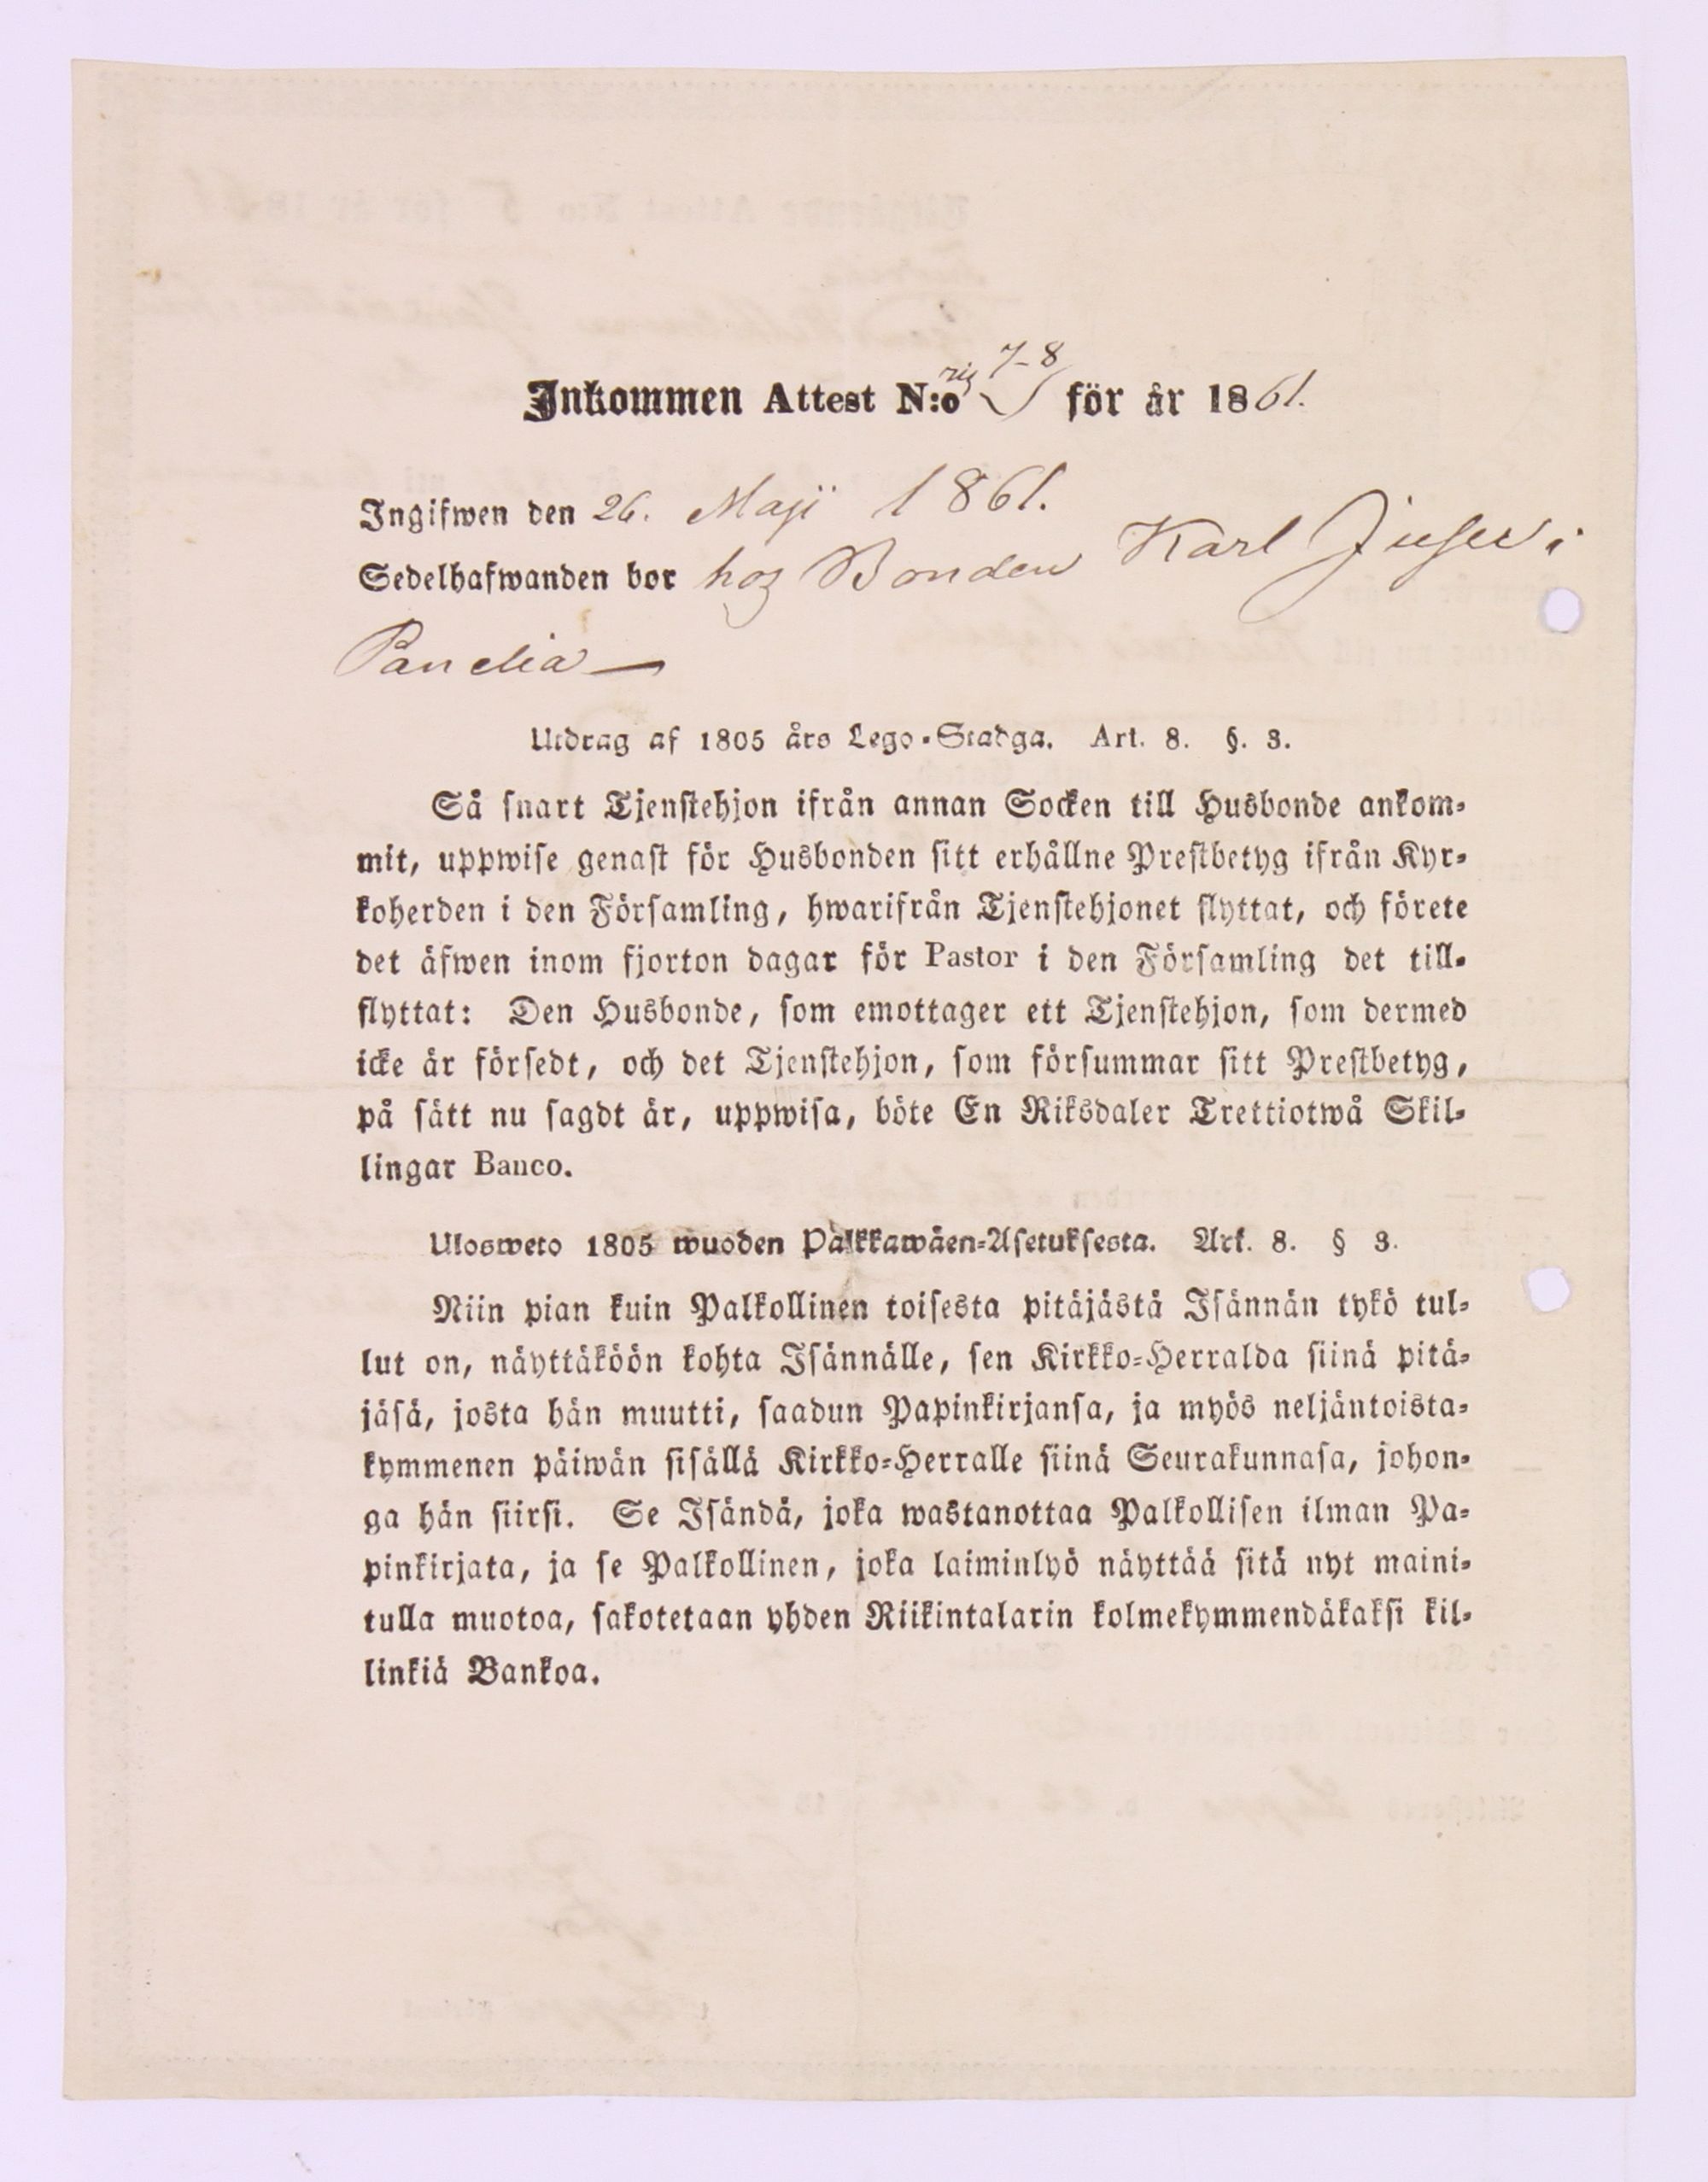 Inkommen Attest N:o ris 7-8 för år 1861.
Ingifwen den 26. Maji 1861.
Sedelhafwanden bor hos Bonden Karl i
Panelia —
Utdrag af 1805 års Lego-Stadga. Art. 8. §. 3.
Så snart Tjenstehjon ifrån annan Socken till Husbonde ankom-
mit, uppwise genast för Husbonden sitt erhållne Prestbetyg ifrån Kyr-
koherden i den Församling, hwarifrån Tjenstehjonet flyttat, och förete
det äfwen inom fjorton dagar för Pastor i den Församling det till-
flyttat: Den Husbonde, som emottager ett Tjenstehjon, som dermed
icke är försedt, och det Tjenstehjon, som försummar sitt Prestbetyg,
på sätt nu sagdt är, uppwisa, böte En Riksdaler Trettiotwå Skil-
lingar Banco.
Ulosweto 1805 wuoden Palkkawäen-Asetuksesta. Art. 8. § 3.
Niin pian kuin Palkollinen toisesta pitäjästä Isännän tykö tul-
lut on, näyttäköön kohta Isännälle, sen Kirkko-Herralda siinä pitä-
jäsä, josta hän muutti, saadun Papinkirjansa, ja myös neljäntoista-
kymmenen päiwän sisällä Kirkko-Herralle siinä Seurakunnasa, johon-
ga hän siirsi. Se Isändä, joka wastanottaa Palkollisen ilman Pa-
pinkirjata, ja se Palkollinen, joka laiminlyö näyttää sitä nyt maini-
tulla muotoa, sakotetaan yhden Riikintalarin kolmekymmendäkaksi kil-
linkiä Bankoa.